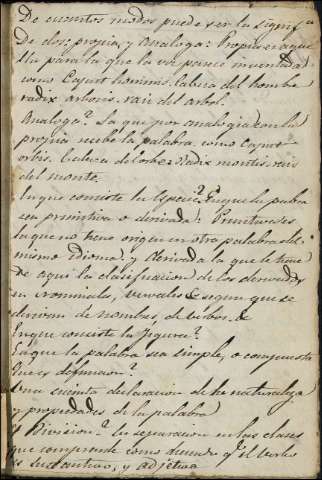 De cuantos modos puede ser la signif.on
De dos: propia, y Analoga: Propia es aque
lla para la que la voz parece inventada:
como Caput hominis. Cabeza del hombre
radix arboris. raiz del arbol.
Analoga? La que por analogia con la
propia recibe la palabra, como Caput
orbis. Cabeza del orbe: radix montis. raiz
del monte.
En que consiste la Especie? En que la palabra
sea primitiva o derivada: Primitiva es
la que no tiene origen en otra palabra del
mismo idioma: y derivada la que le tiene
De aqui la clasificacion de los derivados
en nominales, verbales &c segun que se
derivan de nombres, de verbos &c
En que consiste la Figura?
En que la palabra sea simple, o compuesta
Que es definicion?
Una sucinta declaracion de la naturaleza
y propiedades de la palabra
Y Division? La separacion en las clases
que comprende como diciendo q.e el Nombre
es sustantivo, y adjetivo